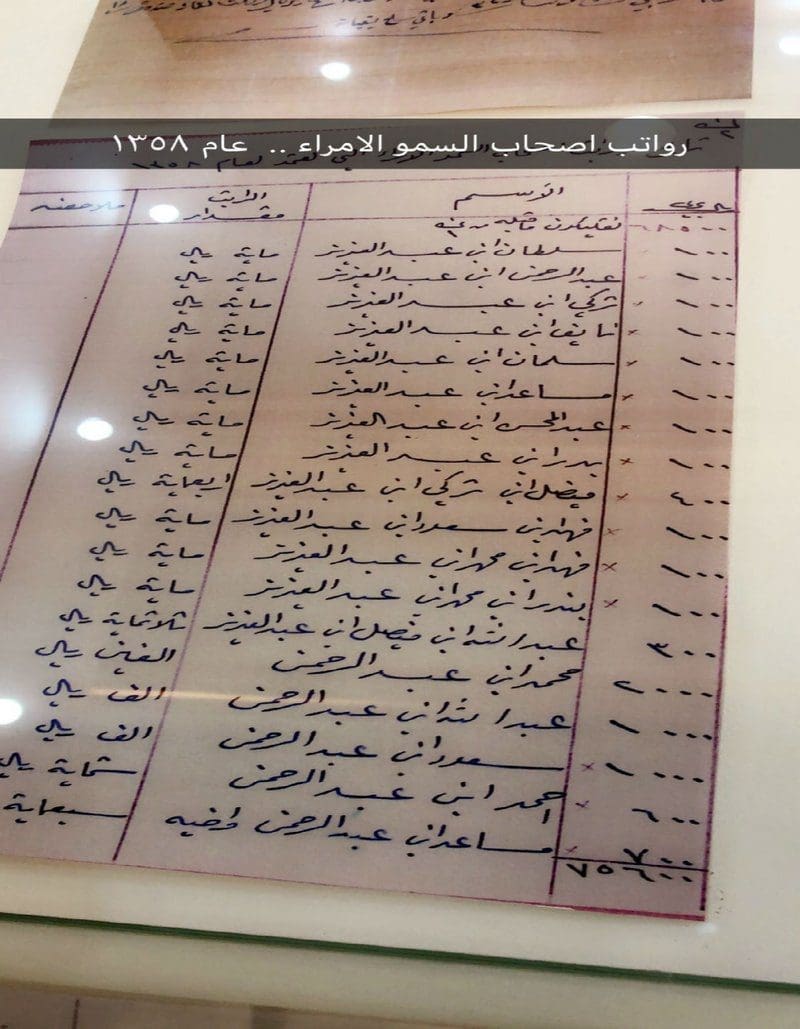 وباقي
رواتب اصحاب السمو الامراء .. عام ١٣٥٨
لعام ١٣٥٨
الاسم مقدار الراتب ملاحظه
٦٨٥٠٠
١٠٠ سلطان ابن عبد العزيز ماية ريال
١٠٠ عبد الرحمن ابن عبد العزيز ماية ريال
١٠٠ × تركي ابن عبد العزيز ماية ريال
١٠٠ × نايف ابن عبد العزيز ماية ريال
١٠٠ × سلمان ابن عبد العزيز ماية ريال
١٠٠ × مساعد ابن عبد العزيز ماية ريال
١٠٠ × عبد المحسن ابن عبد العزيز ماية ريال
١٠٠ × بدر ابن عبد العزيز ماية ريال
٤٠٠ × فيصل ابن تركي ابن عبد العزيز اربعماية ريال
١٠٠ × فهد ابن سعود ابن عبد العزيز ماية ريال
١٠٠ × فهد ابن محمد ابن عبد العزيز ماية ريال
١٠٠ × بندر ابن محمد ابن عبد العزيز ماية ريال
٣٠٠ عبد الله ابن فيصل ابن عبد العزيز ثلاثماية ريال
٢٠٠٠ محمد ابن عبد الرحمن الفين ريال
١٠٠٠ عبد الله ابن عبد الرحمن الف ريال
١٠٠٠ × سعود ابن عبد الرحمن الف ريال
٦٠٠ × احمد ابن عبد الرحمن ستماية ريال
٧٠٠ × مساعد ابن عبد الرحمن واخيه سبعماية
٧٥٦٠٠